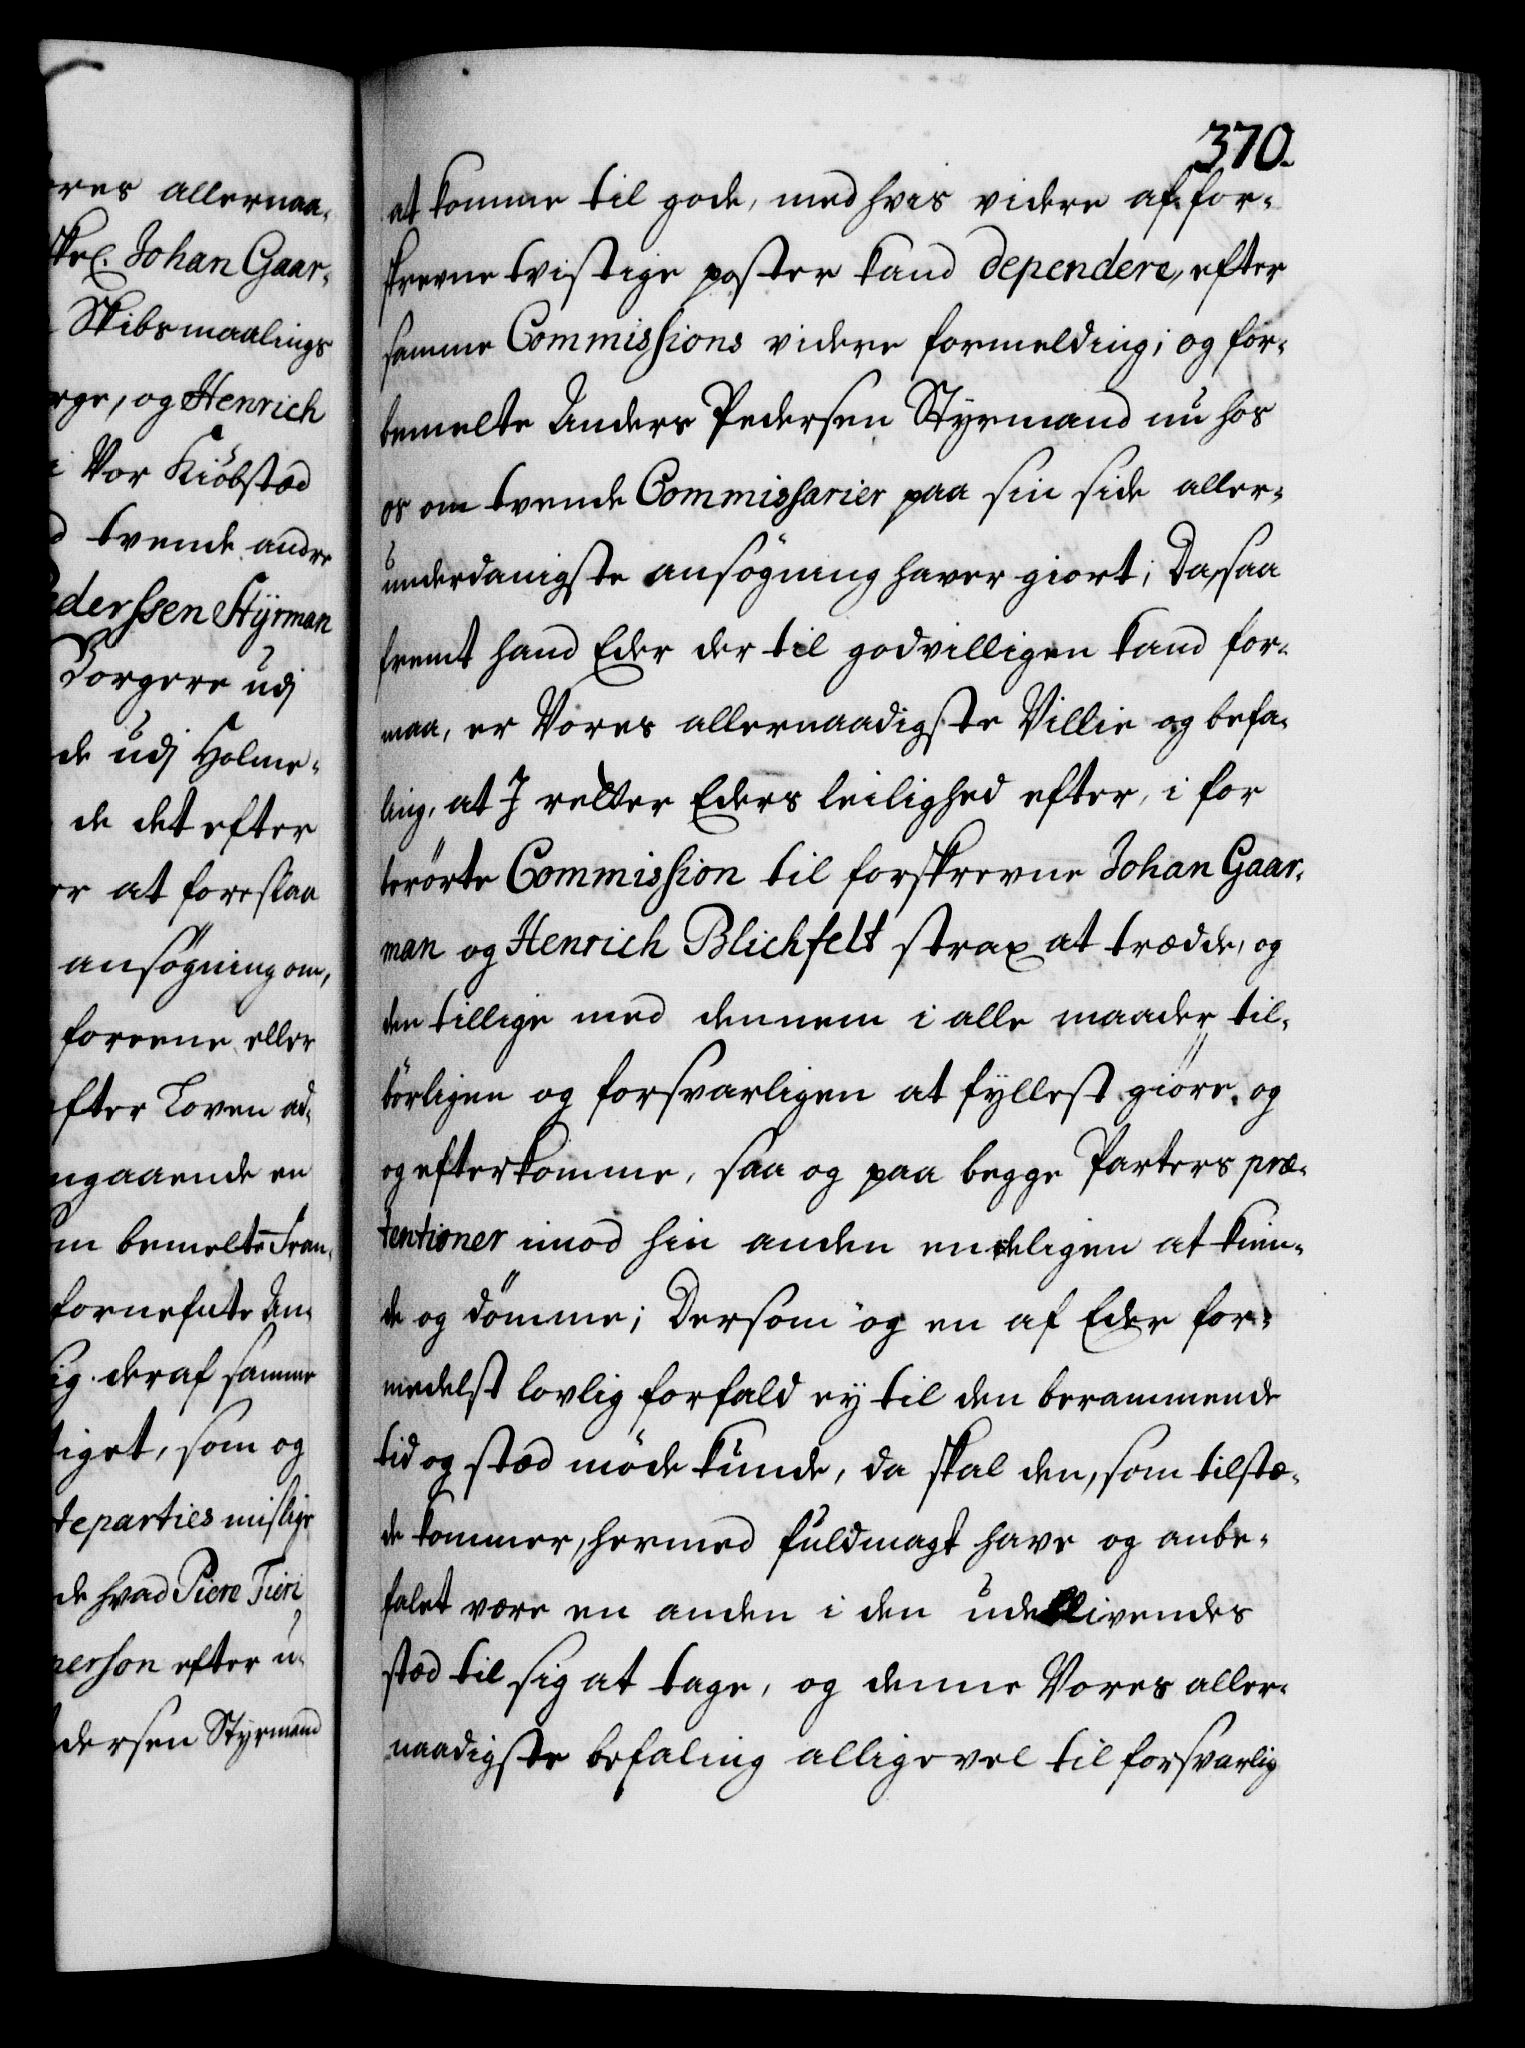 ores allernaa-
Johan Gaar-
Skibsmaalings
og Henrich
i Vor Kiöbstæd
tvende andre
ederssen Stÿrman
Borgere udj
de udj Holme-
de det efter
er at foreslaa
ansögning om,
foreene eller
efter Loven ad-
ngaaende en
m bemelte Fran-
fornefnte An-
sig deraf samme
tiget, som og
teparties mislige
de hvad Piere Tieri
person efter u-
dersen Styrmand
370.
at komme til gode, med hvis videre af for-
skrevne tvistige poster kand dependere, efter
samme Commissions videre formelding; og for-
bemelte Anders Pedersen Styrmand nu hos
os om tvende Commissarier paa sin side aller-
underdanigste ansögning haver giort; Da, saa
fremt hand Eder der til godvilligen kand for-
maa, er Vores allernaadigste Villie og befa-
ling, at I retter Eders leilighed efter, i for
berörte Commission til forskrevne Johan Gaar-
man og Henrich Blichfelt strax at trædde, og
den tillige med dennem i alle maader til-
börligen og forsvarligen at fyllest giöre, og
og efterkomme, saa og paa begge Parters præ-
tentioner imod hin anden endeligen at kien-
de og dömme; Dersom og en af Eder for-
medelst lovlig forfald ey til den berammende
tid og stæd möde kunde, da skal den, som tilstæ-
de kommer, hermed fuldmagt have og anbe-
falet være en anden i den udeblivendes
stæd til sig at tage, og denne Vores aller-
naadigste befaling alligevel til forsvarlig